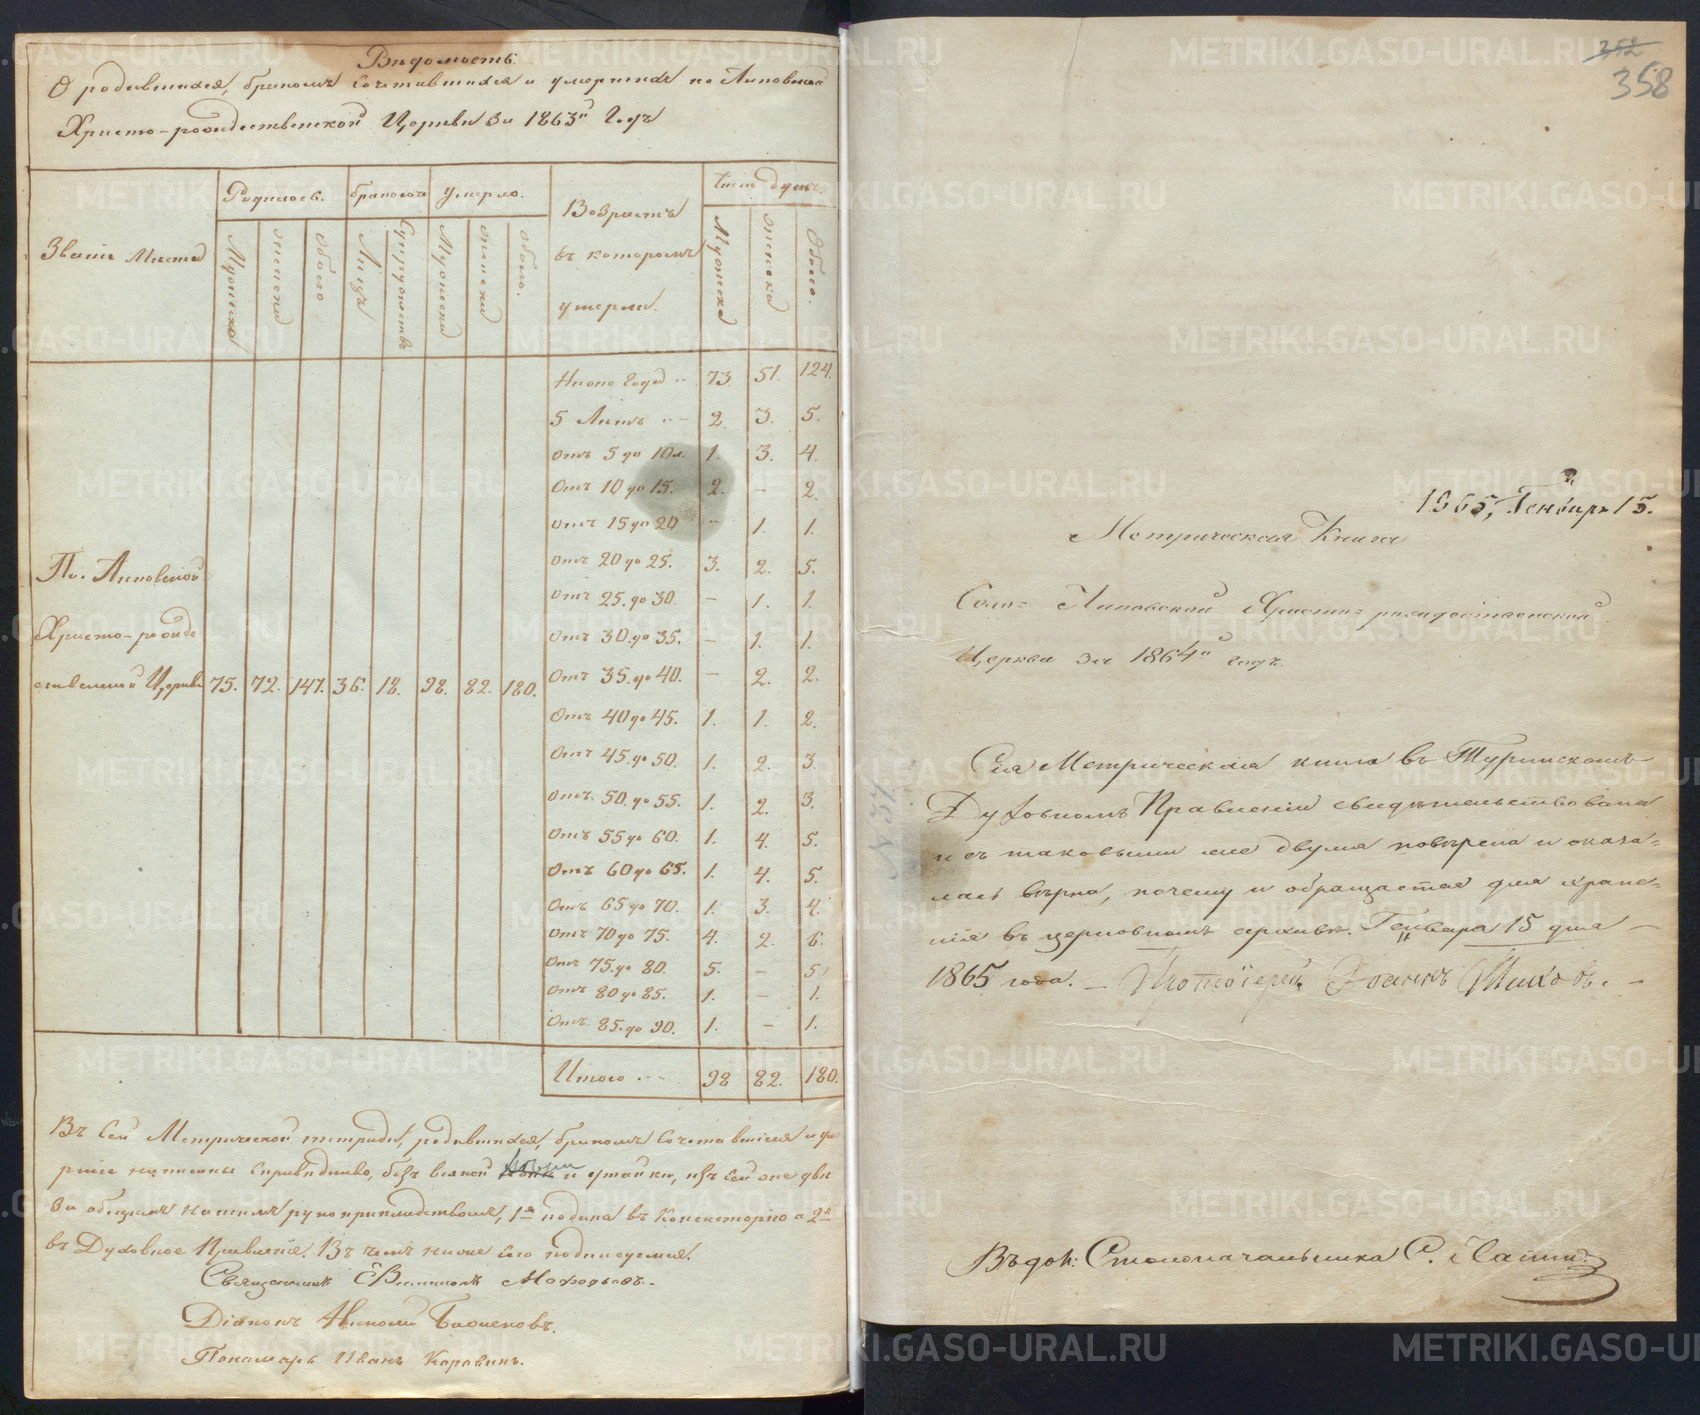 Ведомость.
О родившихся, бракомъ сочетавшихся и умершихъ по Липовской
Христо-рождественской Церкви за 1863й Годъ
Званіе Места
Родилось.
браковъ
Умерло.
Возрастъ
въ которомъ
умерли.
Число душъ.
Мужеска
женска
Обоего
Лицъ
Супружествъ
Мужеска
женска
обоего.
Мужеска
женска
Обоего.
Ниже Года 73. 51. 124.
5 Летъ 2. 3. 5.
Отъ 5 до 10 л. 1. 3. 4.
Отъ 10 до 15. 2. – 2.
Отъ 15 до 20 – 1. 1.
Отъ 20 до 25. 3. 2. 5.
Отъ 25. до 30. – 1. 1.
Отъ 30. до 35. – 1. 1.
Отъ 35. до 40. – 2. 2.
Отъ 40 до 45. 1. 1. 2.
Отъ 45. до 50. 1. 2. 3.
Отъ 50. до 55. 1. 2. 3.
Отъ 55 до 60. 1. 4. 5.
Отъ 60 до 65. 1. 4. 5.
Отъ 65 до 70. 1. 3. 4.
Отъ 70 до 75. 4. 2. 6.
Отъ 75. до 80. 5. – 5.
Отъ 80 до 85. 1. – 1.
Отъ 85. до 90. 1. – 1.
Итого 98 82. 180.
По Липовской
Христо-рожде
ственской Церкви 75. 72. 147. 36. 18. 98. 82. 180.
Въ сей Метрической тетради, родившихся, бракомъ сочетавшіеся и уме
ршіе написаны справедливо, безъ всякой лжи и утайки, изъ сей же две
за общимъ нашимъ рукоприкладствомъ, 1я подана въ Консисторію а 2я
въ Духовное Правленіе. Въ чемъ ниже сего подписуемся.
Священникъ
Діаконъ Николай
Пономарь Иванъ Коровинъ.
352
358
1865, Генваря 15.
Метрическая Книга
Село= Липовской Христо=рождественской
Церкви за 1864й годъ.
Сія Метрическая книга въ Туринскомъ
Духовномъ Правленіи свидетельствована
и съ таковыми же двумя поверена и оказа=
лась верна, почему и обращается для хране=
нія въ церковномъ архиве. Генваря 15 дня –
1865 года. – Протоіерей Іоаннъ
Въ дол: Столоначальника С.
METRIKI.GASO-URAL.RU